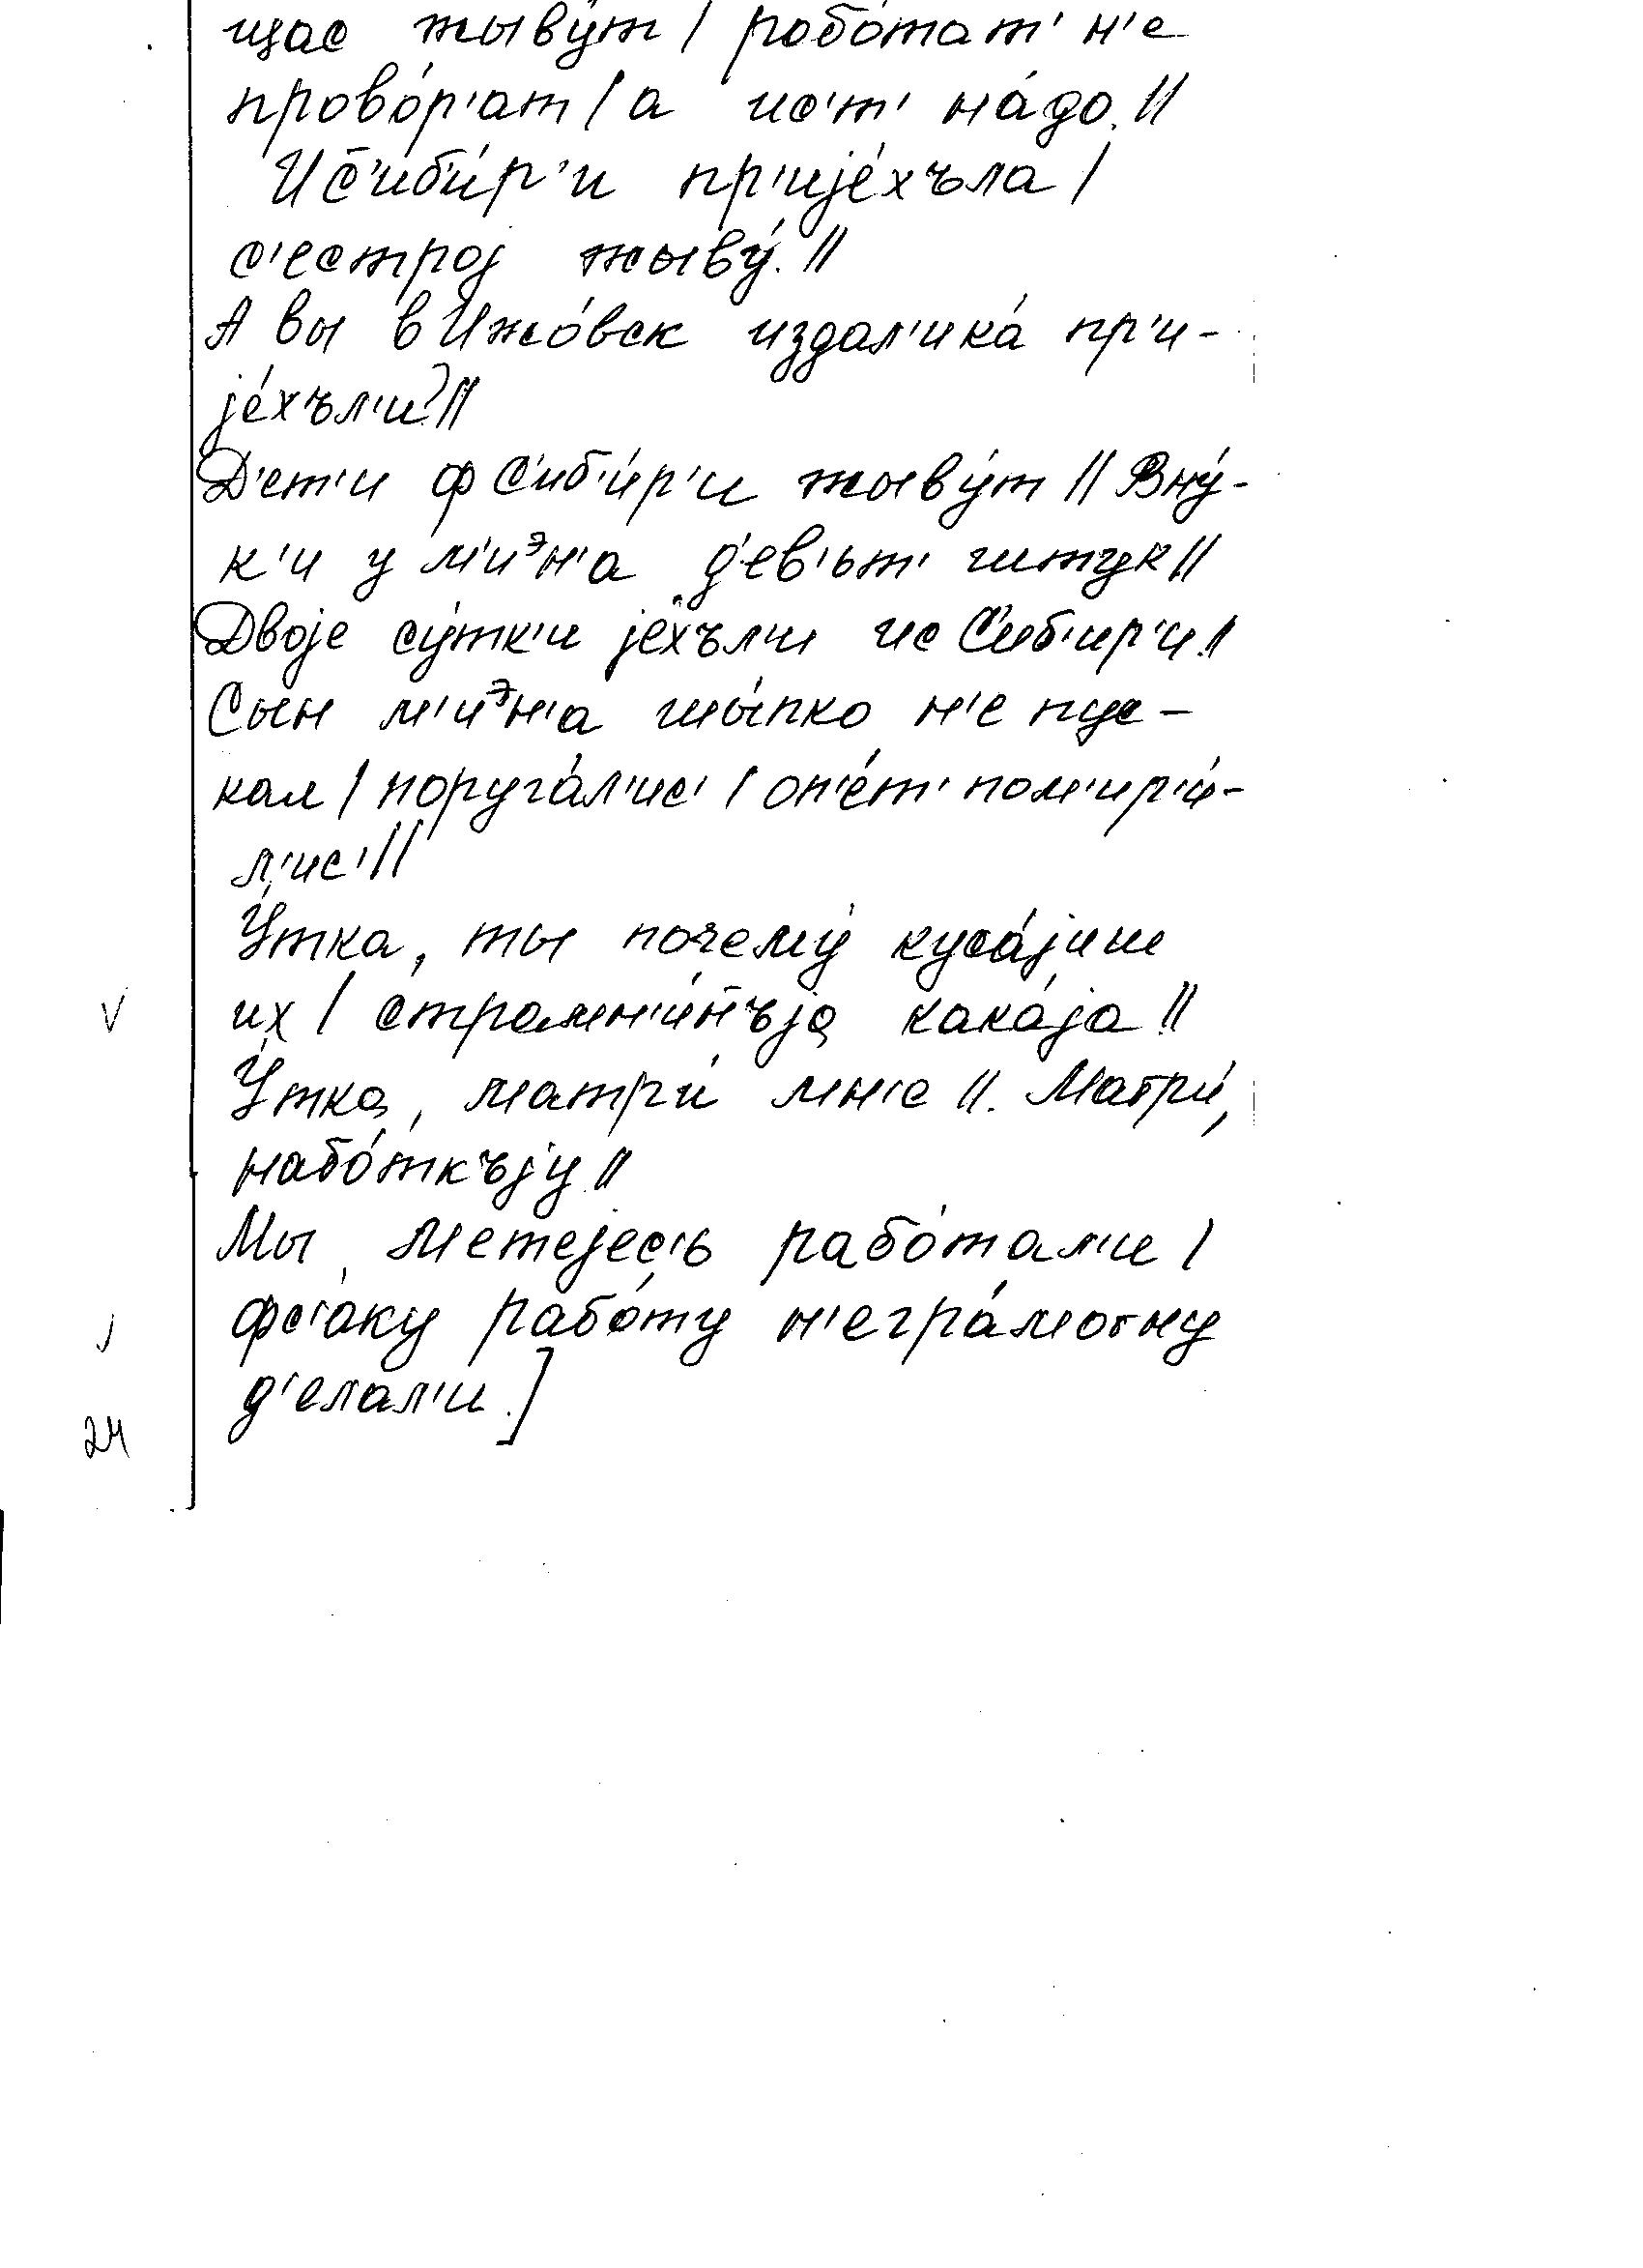 щас жыву́т / робо́тат' н'е
прово́р'ат / а ис'т' на́до. //
Ис̄'иб'и́р'и пр'ијéхъла /
с'естрој жыву́. //
А вы в Ижо́вск издал'ика́ пр'и-
јéхъл'и? //
Д'ет'и ф С'иб'и́р'и жыву́т // Вну́-
к'и у м'иэн'а д'ев'ът' штук //
Двоје су́тк'и јéхъли ис С'иб'ир'и. //
Сын м'иэн'а шы́пко н'е пус-
кал / поруга́л'ис' / оп'е́т' пом'ир'и́-
л'ис' //
У́тка, ты почему́ куса́јиш
их / страмн'и́н̄ъја кака́ја //
У́тка, матри́ мн'е //. Матри́,
набо́ткъју //
Мы метејес'ь рабо́тал'и /
v
фс'а́ку рабо́ту н'егра́мотну
д'елал'и.]
24